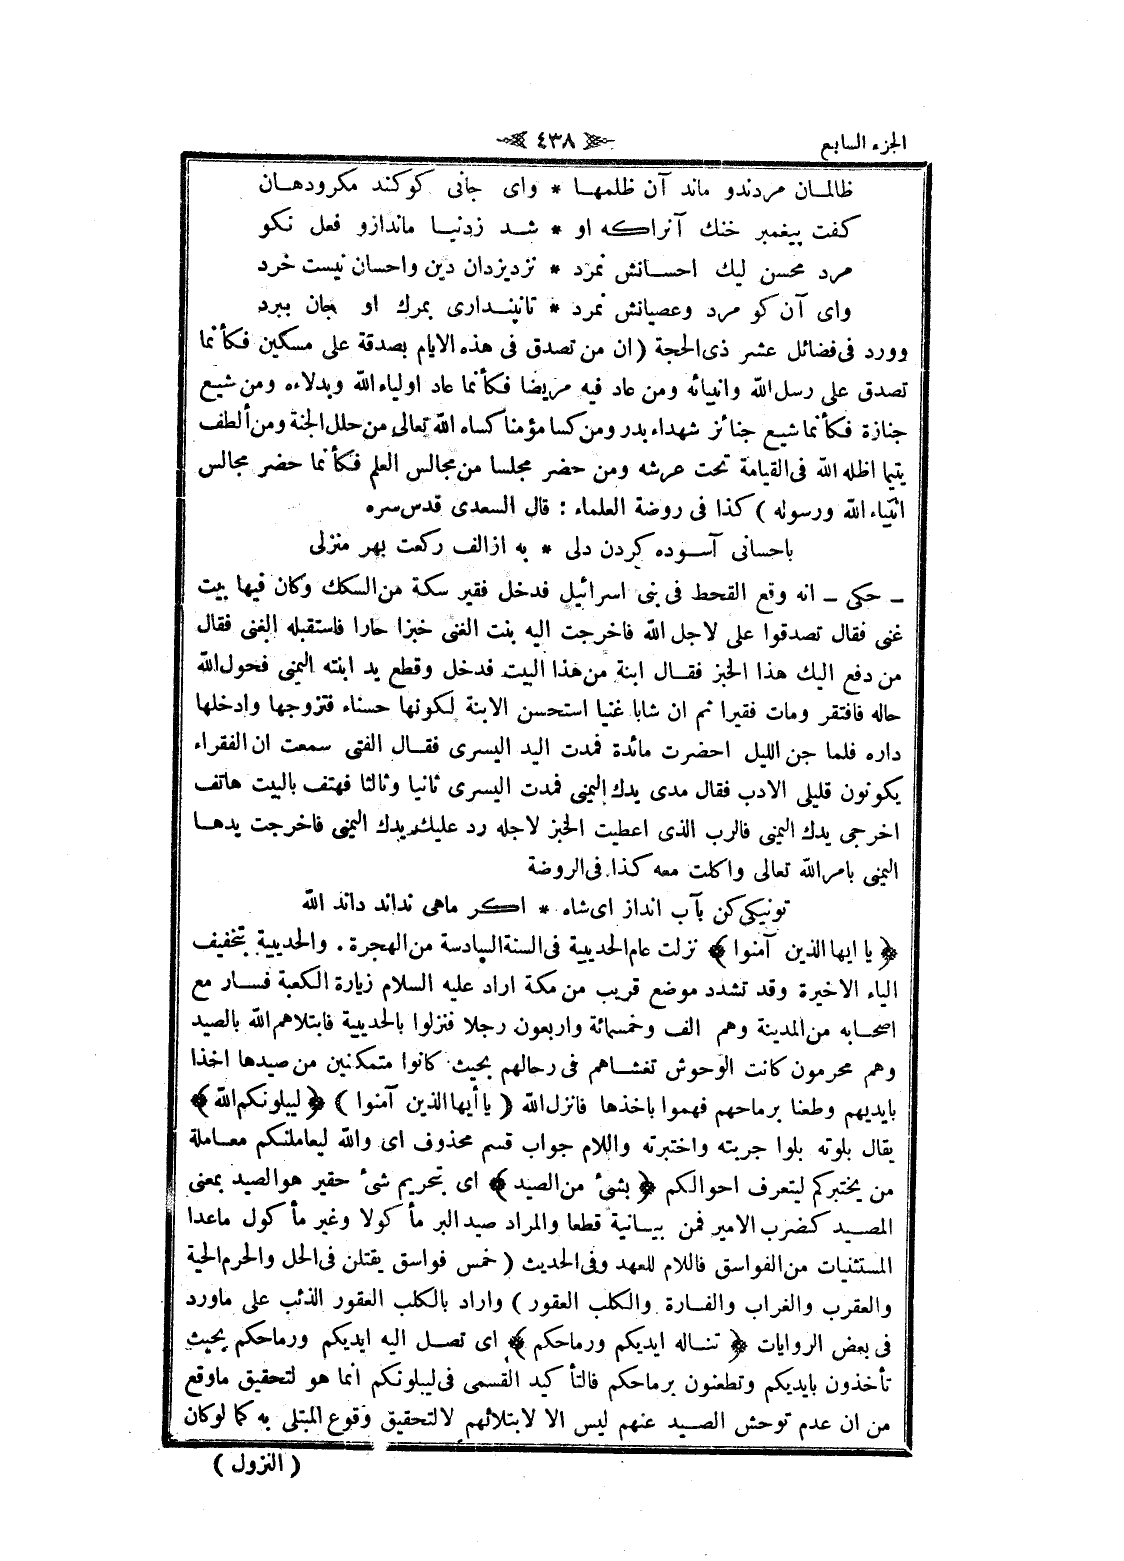 الجزء السابع
٤٣٨
ظالمان مردندو ماند آن ظلمها * وای جانی کوکند مکرودهان
کفت پیغمبر خنك آنراکه او * شد زدنیا ماندازو فعل نکو
مرد محسن لیك احسانش نمرد * نزدیزدان دین واحسان نیست خرد
وای آن کو مرد وعصیانش نمرد * تانپنداری بمرك او جان ببرد
وورد فى فضائل عشر ذى الحجة (ان من تصدق فى هذه الايام بصدقة على مسكين فكأنما
تصدق على رسل الله وانبيائه ومن عاد فيه مريضا فكأنما عاد اولياء الله وبدلاءه ومن شيع
جنازة فكأنما شيع جنائز شهداء بدر ومن كسا مؤمنا كساه الله تعالى من حلل الجنة ومن ألطف
يتيما اظله الله فى القيامة تحت عرشه ومن حضر مجلسا من مجالس العلم فكأنما حضر مجالس
انبياء الله ورسوله ) كذا فى روضة العلماء : قال السعدى قدس سره
باحسانی آسوده کردن دلی * به ازالف رکعت بهر منزلی
ـ حكى ـ انه وقع القحط فى بنى اسرائيل فدخل فقير سكة من السكك وكان فيها بيت
غنى فقال تصدقوا على لاجل الله فاخرجت اليه بنت الغنى خبزا حارا فاستقبله الغنى فقال
من دفع اليك هذا الخبز فقال ابنة من هذا البيت فدخل وقطع يد ابنته اليمنى فحول الله
حاله فافتقر ومات فقيرا ثم ان شابا غنيا استحسن الابنة لكونها حسناء فتزوجها وادخلها
داره فلما جن الليل احضرت مائدة فمدت اليد اليسرى فقال الفتى سمعت ان الفقراء
يكونون قليلى الادب فقال مدى يدك اليمنى فمدت اليسرى ثانيا وثالثا فهتف بالبيت هاتف
اخرجى يدك اليمنى فالرب الذى اعطيت الخبز لاجله رد عليك يدك اليمنى فاخرجت يدها
اليمنى بامر الله تعالى واكلت معه كذا فى الروضة
تونیکی کن بآب انداز ای شاه * اکر ماهی نداند داند الله
﴿ يا ايها الذين آمنوا ﴾ نزلت عام الحديبية فى السنة السادسة من الهجرة . والحديبية بتخفيف
الياء الاخيرة وقد تشدد موضع قريب من مكة اراد عليه السلام زيارة الكعبة فسار مع
اصحابه من المدينة وهم الف وخمسمائة واربعون رجلا فنزلوا بالحديبية فابتلاهم الله بالصيد
وهم محرمون كانت الوحوش تغشاهم فى رحالهم بحيث كانوا متمكنين من صيدها اخذا
بايديهم وطعنا برماحهم فهموا باخذها فانزل الله ( يا أيها الذين آمنوا ) ﴿ ليبلونكم الله ﴾
يقال بلوته بلوا جربته واختبرته واللام جواب قسم محذوف اى والله ليعاملنكم معاملة
من يختبركم ليتعرف احوالكم ﴿ بشئ من الصيد ﴾ اى بتحريم شئ حقير هو الصيد بمعنى
المصيد كضرب الامير فمن بيانية قطعا والمراد صيد البر مأكولا وغير مأكول ماعدا
المستثنيات من الفواسق فاللام للعهد وفى الحديث ( خمس فواسق يقتلن فى الحل والحرم الحية
والعقرب والغراب والفارة والكلب العقور ) واراد بالكلب العقور الذئب على ماورد
فى بعض الروايات ﴿ تناله ايديكم ورماحكم ﴾ اى تصل اليه ايديكم ورماحكم بحيث
تأخذون بايديكم وتطعنون برماحكم فالتأكيد القسمى فى ليبلونكم انما هو لتحقيق ماوقع
من ان عدم توحش الصيد عنهم ليس الا لابتلائهم لالتحقيق وقوع المبتلى به كما لوكان
( النزول )